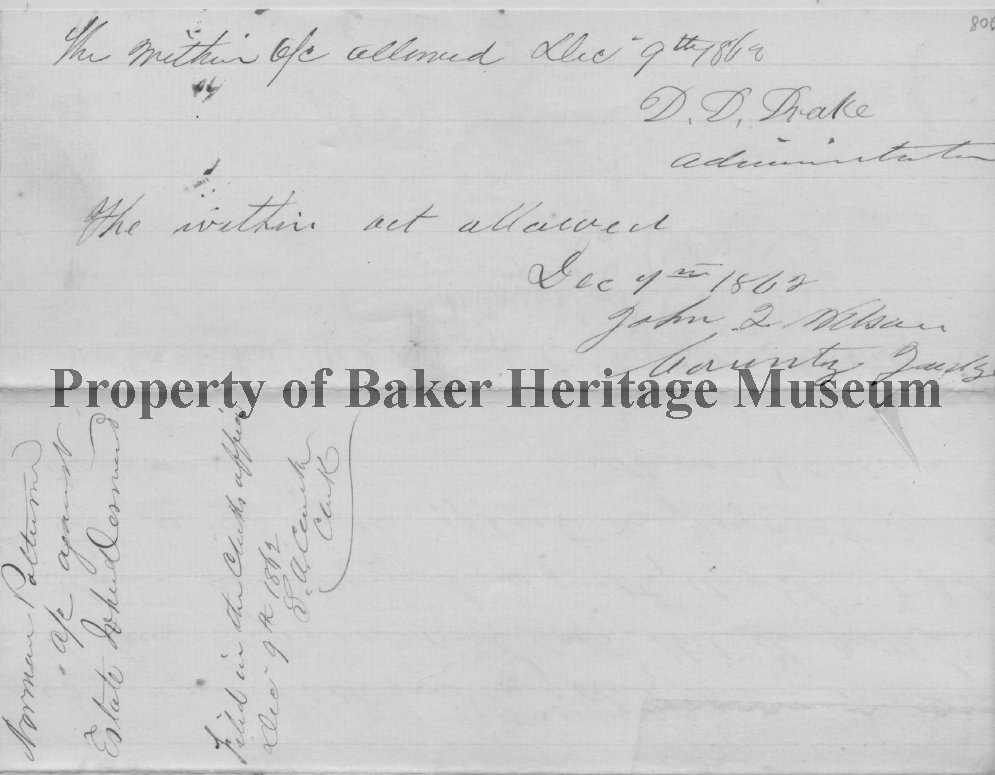 806
The within a/c allowed Dec 9th 1862
D. D. Drake
Administrator
The within act allowed
Dec 9th 1862
John Q Wilson
County Judge
Property of Baker Heritage Museum
Norman
a/c against
Estate John
Filed in the Clerks office
Dec 9th 1862
Clerk